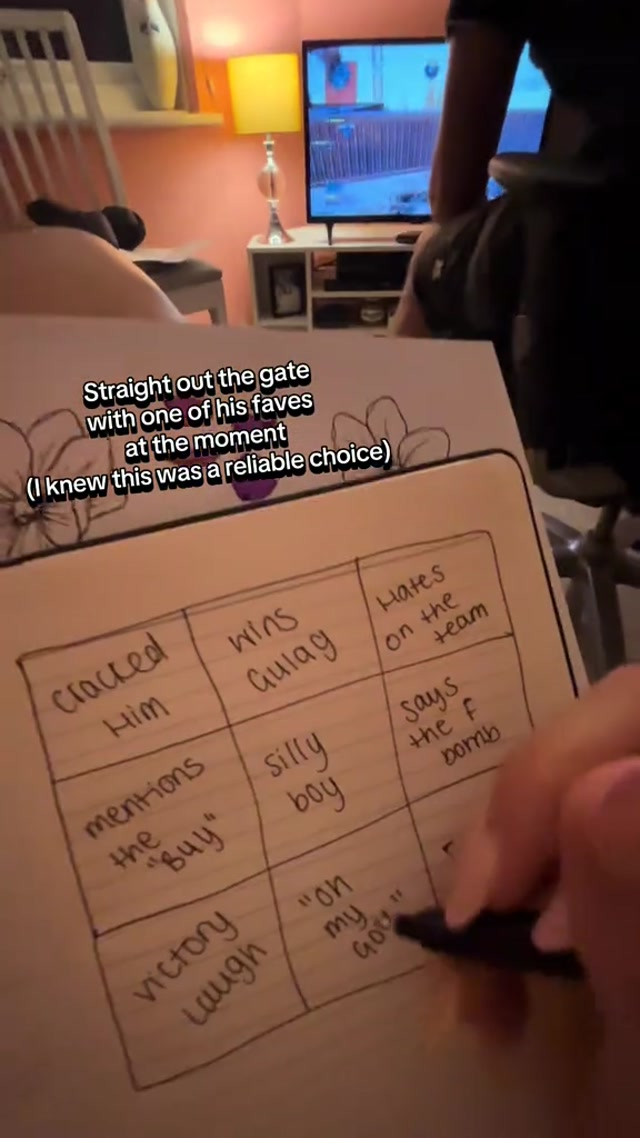 Straight out the gate
with one of his faves
at the moment
(I knew this was a reliable choice)
cracked
Him
wins
Gulag
Hates
on the
team
mentions
the
"Buy"
silly
boy
says
the f
bomb
victory
laugh
"oh
my